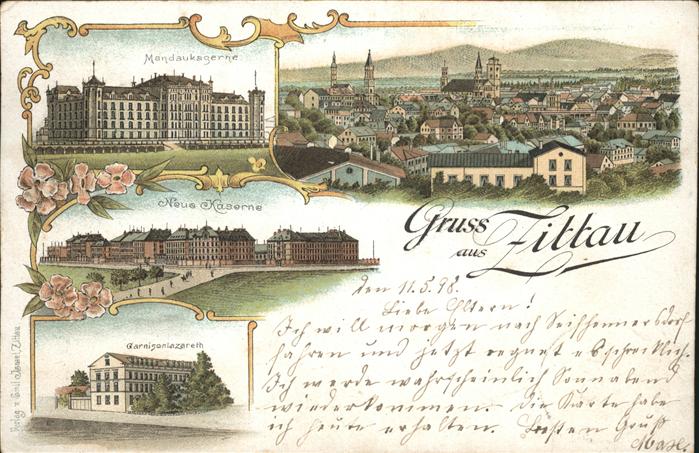 Mandaukaserne
Neue Kaserne
Garnisonlazareth
Gruss
aus Zittau
den 11.5.98.
Liebe Eltern!
Ich will morgen nach Seifhennersdorf
fahren und jetzt regnet es schrecklich.
Ich werde wahrscheinlich Sonnabend
wiederkommen. Die Karte habe
ich heute erhalten. Besten Gruß
Verlag v. Emil Zittau